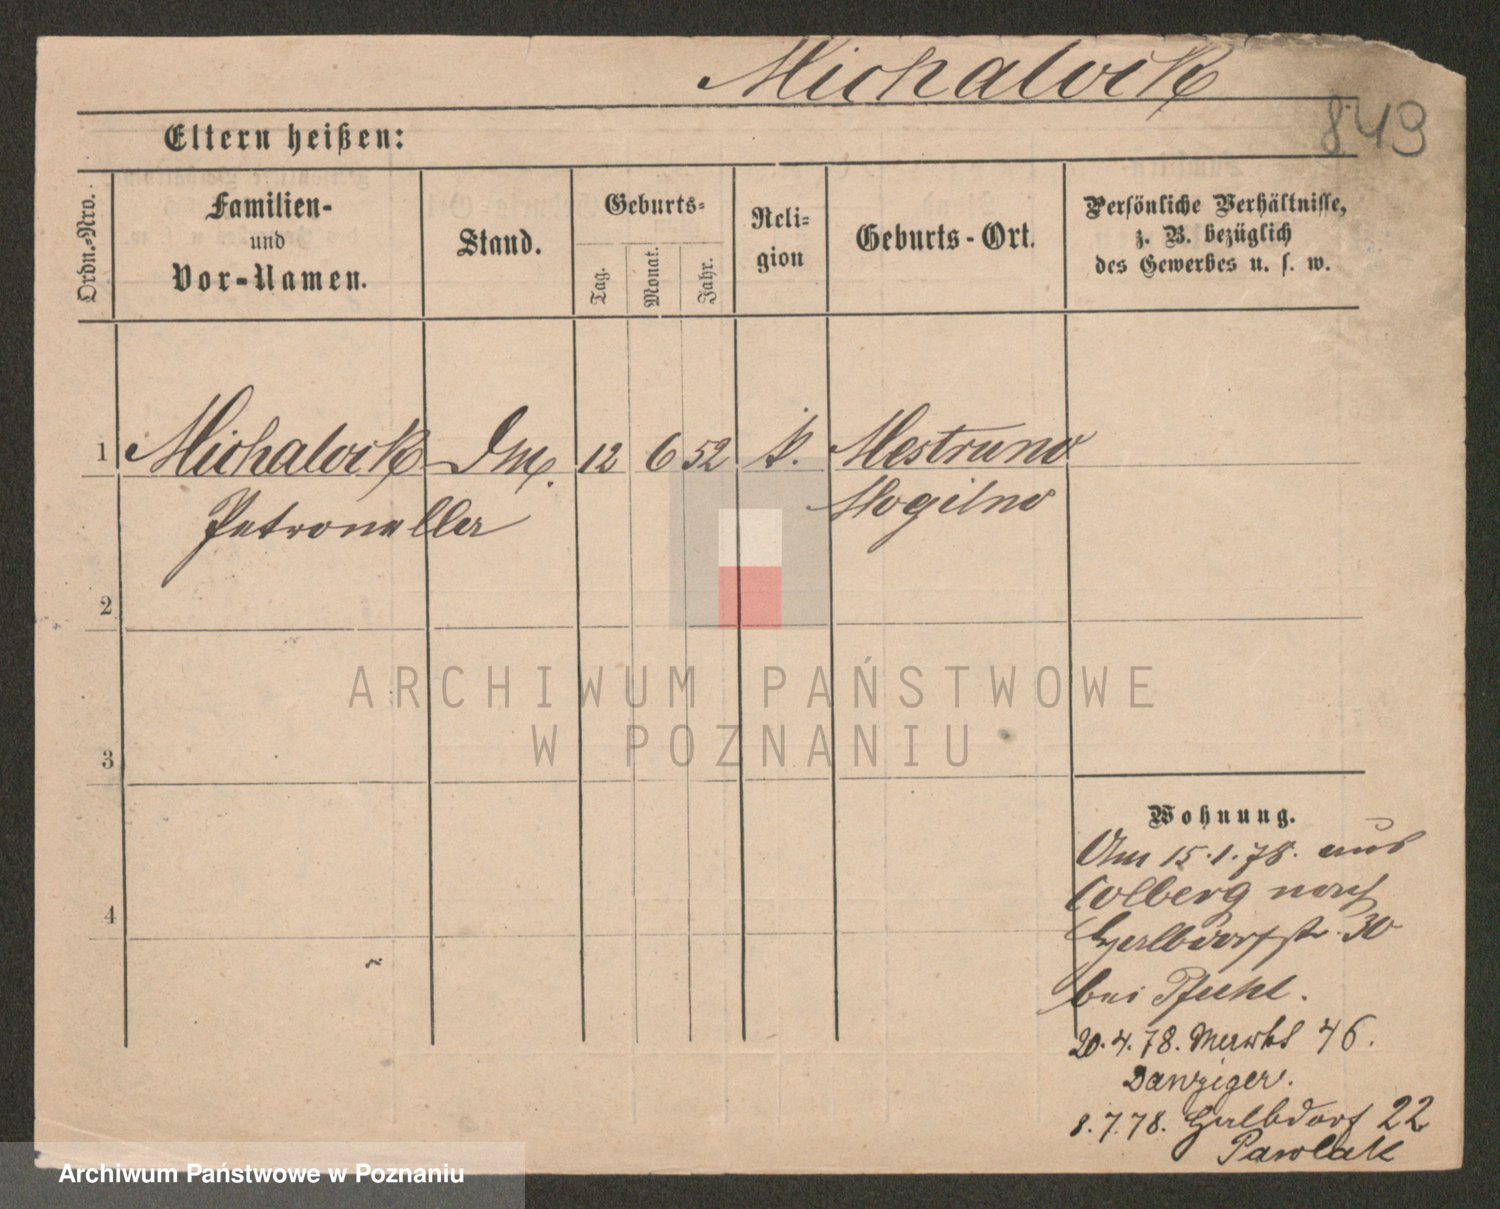 Michalock
849
Eltern heißen:
Ordn.-Nro.
Familien-
und
Vor-Namen.
Stand.
Geburts-
Tag.
Monat.
Jahr.
Reli-
gion
Geburts-Ort.
Persönliche Verhältnisse,
z. B. bezüglich
des Gewerbes u. s. w.
1 Michalock 12 6 52 k. Mestruno
Petronella Mogilno
2
3
4
Wohnung.
Am 15.1.78. aus
Colberg nach
Halbdorfstr. 30
bei Pfuhl.
20.4.78. Markt 46.
Danziger.
8.7.78. Halbdorf 22
Pawlak
ARCHIWUM PAŃSTWOWE
W POZNANIU
Archiwum Państwowe w Poznaniu